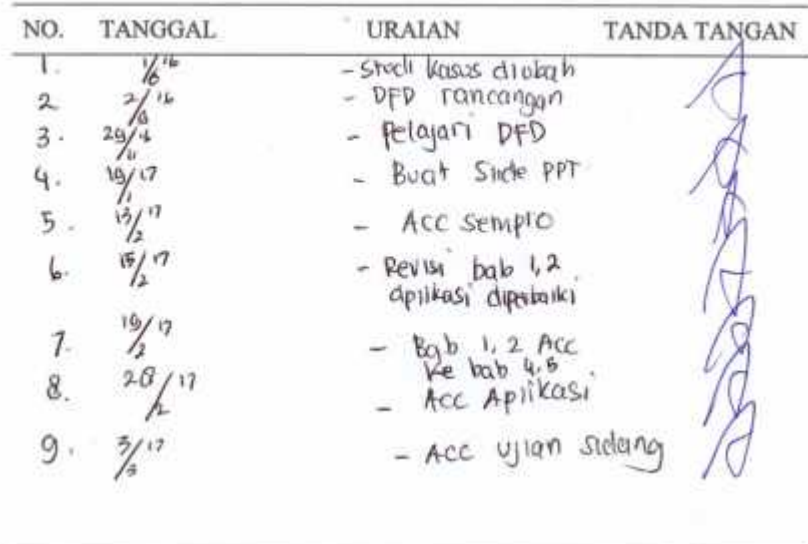 NO. TANGGAL URAIAN TANDA TANGAN
1. 1/6 16 - Studi kasus diubah
2 2/8 16 - DFD rancangan
3. 29/11 16 - Pelajari DFD
4. 19/1 17 - Buat Slide PPT
5. 13/2 17 - ACC Sempro
6. 15/2 17 - Revisi bab 1, 2
aplikasi diperbaiki
7. 19/2 17 - Bab 1, 2 Acc
ke bab 4.5
8. 28/2 17 - ACC Aplikasi
9. 3/3 17 - ACC Ujian sidang